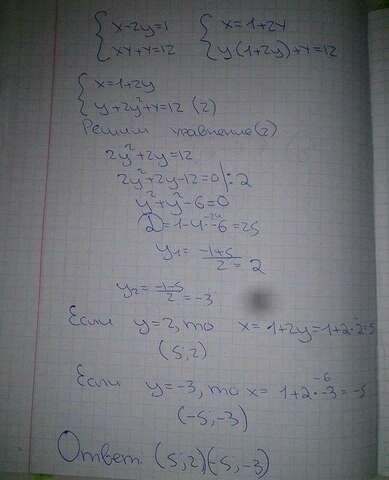 { x-2y=1 { x=1+2y
{ xy+y=12 { y(1+2y)+y=12
{ x=1+2y
{ y+2y²+y=12 (2)
Решим уравнение(2)
2y²+2y=12
2y²+2y-12=0 |:2
y²+y-6=0
D=1-4·-6=25
-24
y₁= (-1+5)/2 = 2
y₂= (-1-5)/2 = -3
Если y=2, то x=1+2y=1+2·2=5
(5;2)
Если y=-3, то x= 1+2·-3=-5
-6
(-5,-3)
Ответ (5;2)(-5,-3)